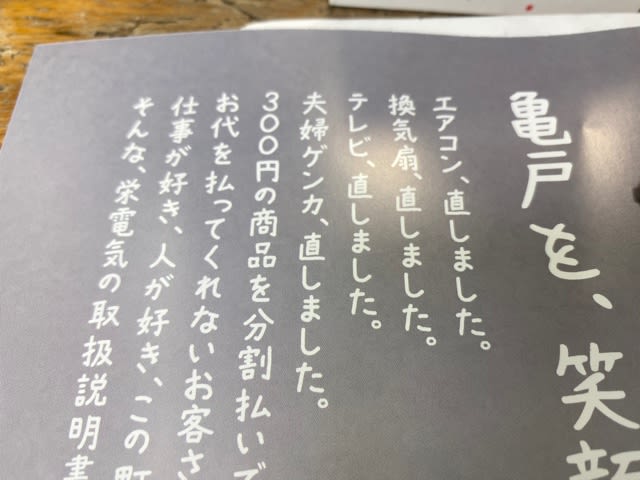 亀戸を、笑顔
エアコン、直しました。
換気扇、直しました。
テレビ、直しました。
夫婦ゲンカ、直しました。
300円の商品を分割払いで
お代を払ってくれないお客さ
仕事が好き、人が好き、この町
そんな、栄電気の取扱説明書